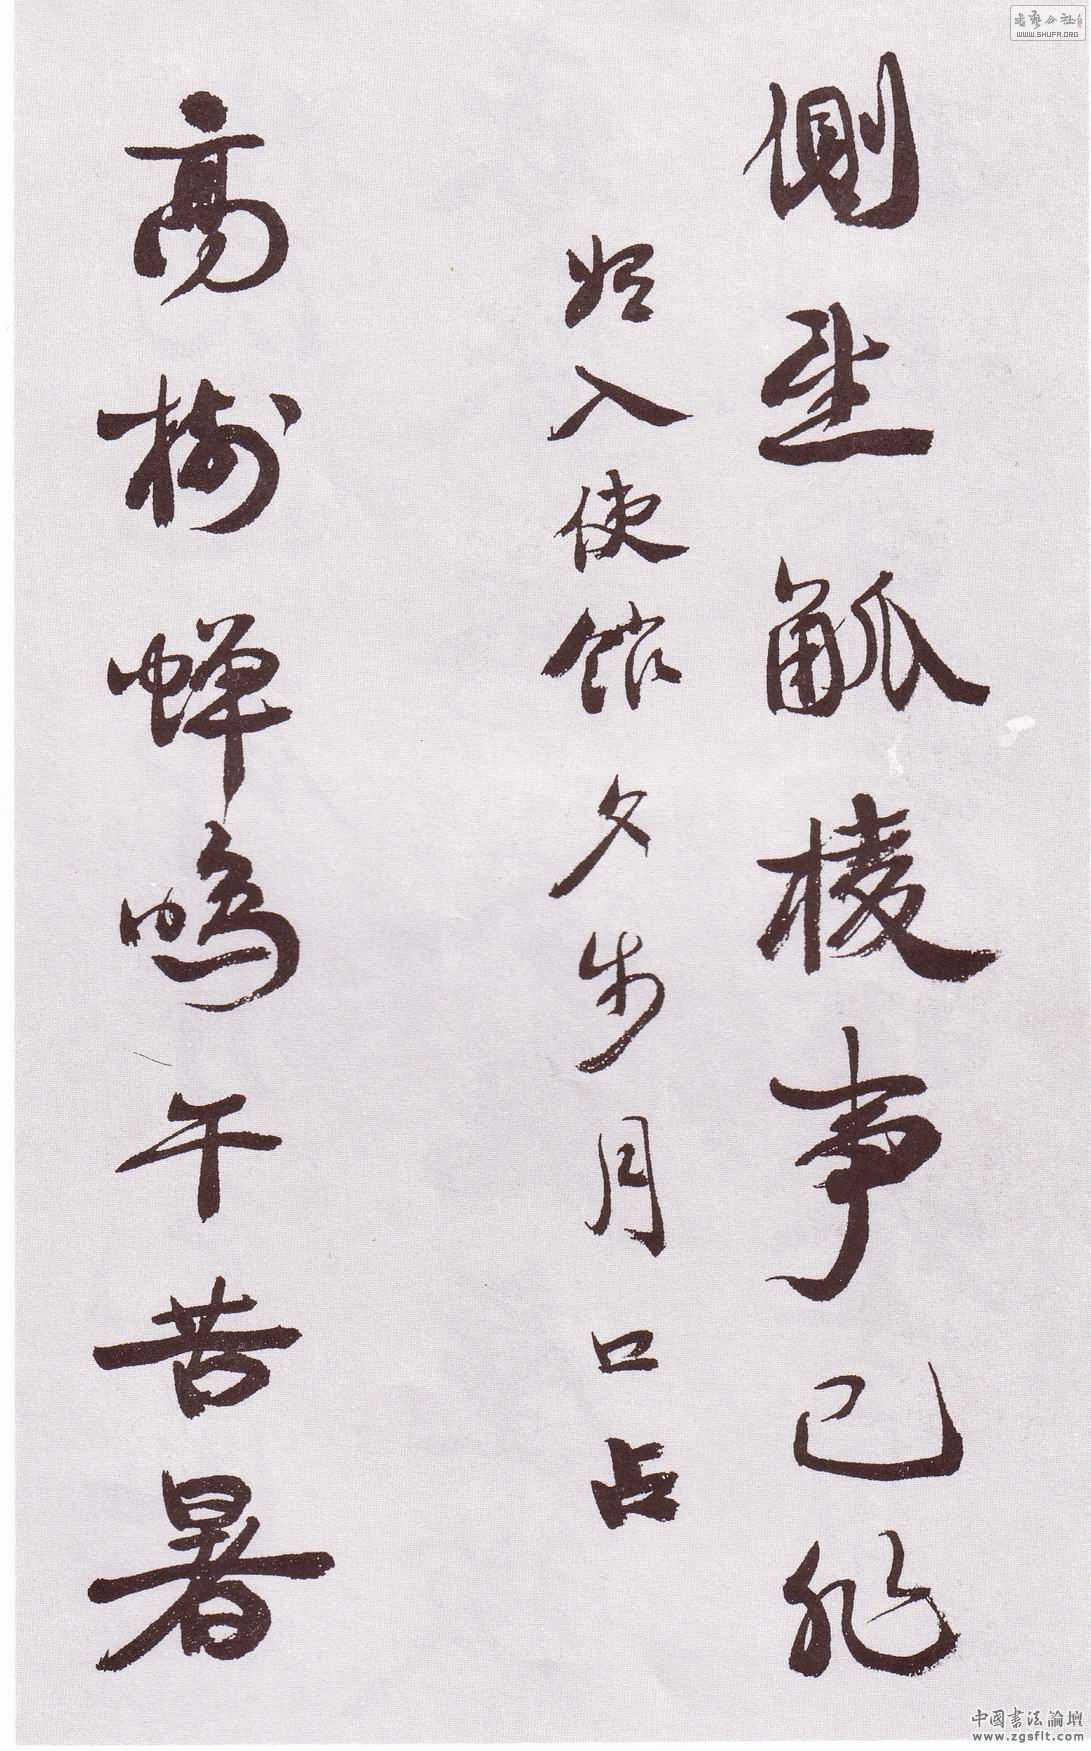 側望觚棱事已非
始入使館夕步月口占
高樹蟬鳴午苦暑
WWW.SHUFA.ORG
中國書法論壇
www.zgsflt.com